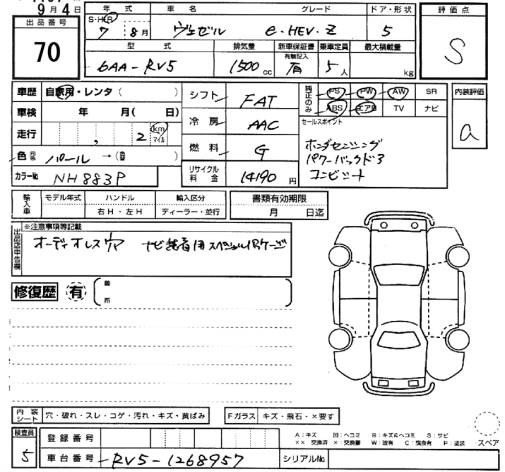 9月4日
出品番号
70
年式 車名 グレード ドア・形状
S・H・R 7年 8月 ヴェゼル e:HEV・Z 5
型式 排気量 新車保証書 有無記入 乗車定員 最大積載量
6AA-RV5 1500cc 有 5人 kg
評価点
S
車歴 自家用・レンタ( )
車検 年 月( 日)
走行 , 2 km
色 パール→( )
カラーNo. NH883P
シフト FAT
冷房 AAC
燃料 G
リサイクル料金 14190円
純正のみ PS PW AW SR
ABS エアB TV ナビ
セールスポイント
ホンダセンシング
パワーバックドア
コンビシート
内装評価
a
輸入車 モデル年式 ハンドル 輸入区分
年 右H・左H ディーラー・並行
書類有効期限
月 日迄
※注意事項等記載
オーディオレス車 ナビ装着用スペシャルパッケージ
修復歴 有 箇所
内装シート 穴・破れ・スレ・コゲ・汚れ・キズ・黄ばみ
Fガラス キズ・飛石・×要す
検査員
5
登録番号
車台番号 RV5-1268957
シリアルNo.
A:キズ 凹:ヘコミ B:キズ&ヘコミ S:サビ
××:交換済 ×:交換要 W:波有 C:腐食有 P:塗装
スペア